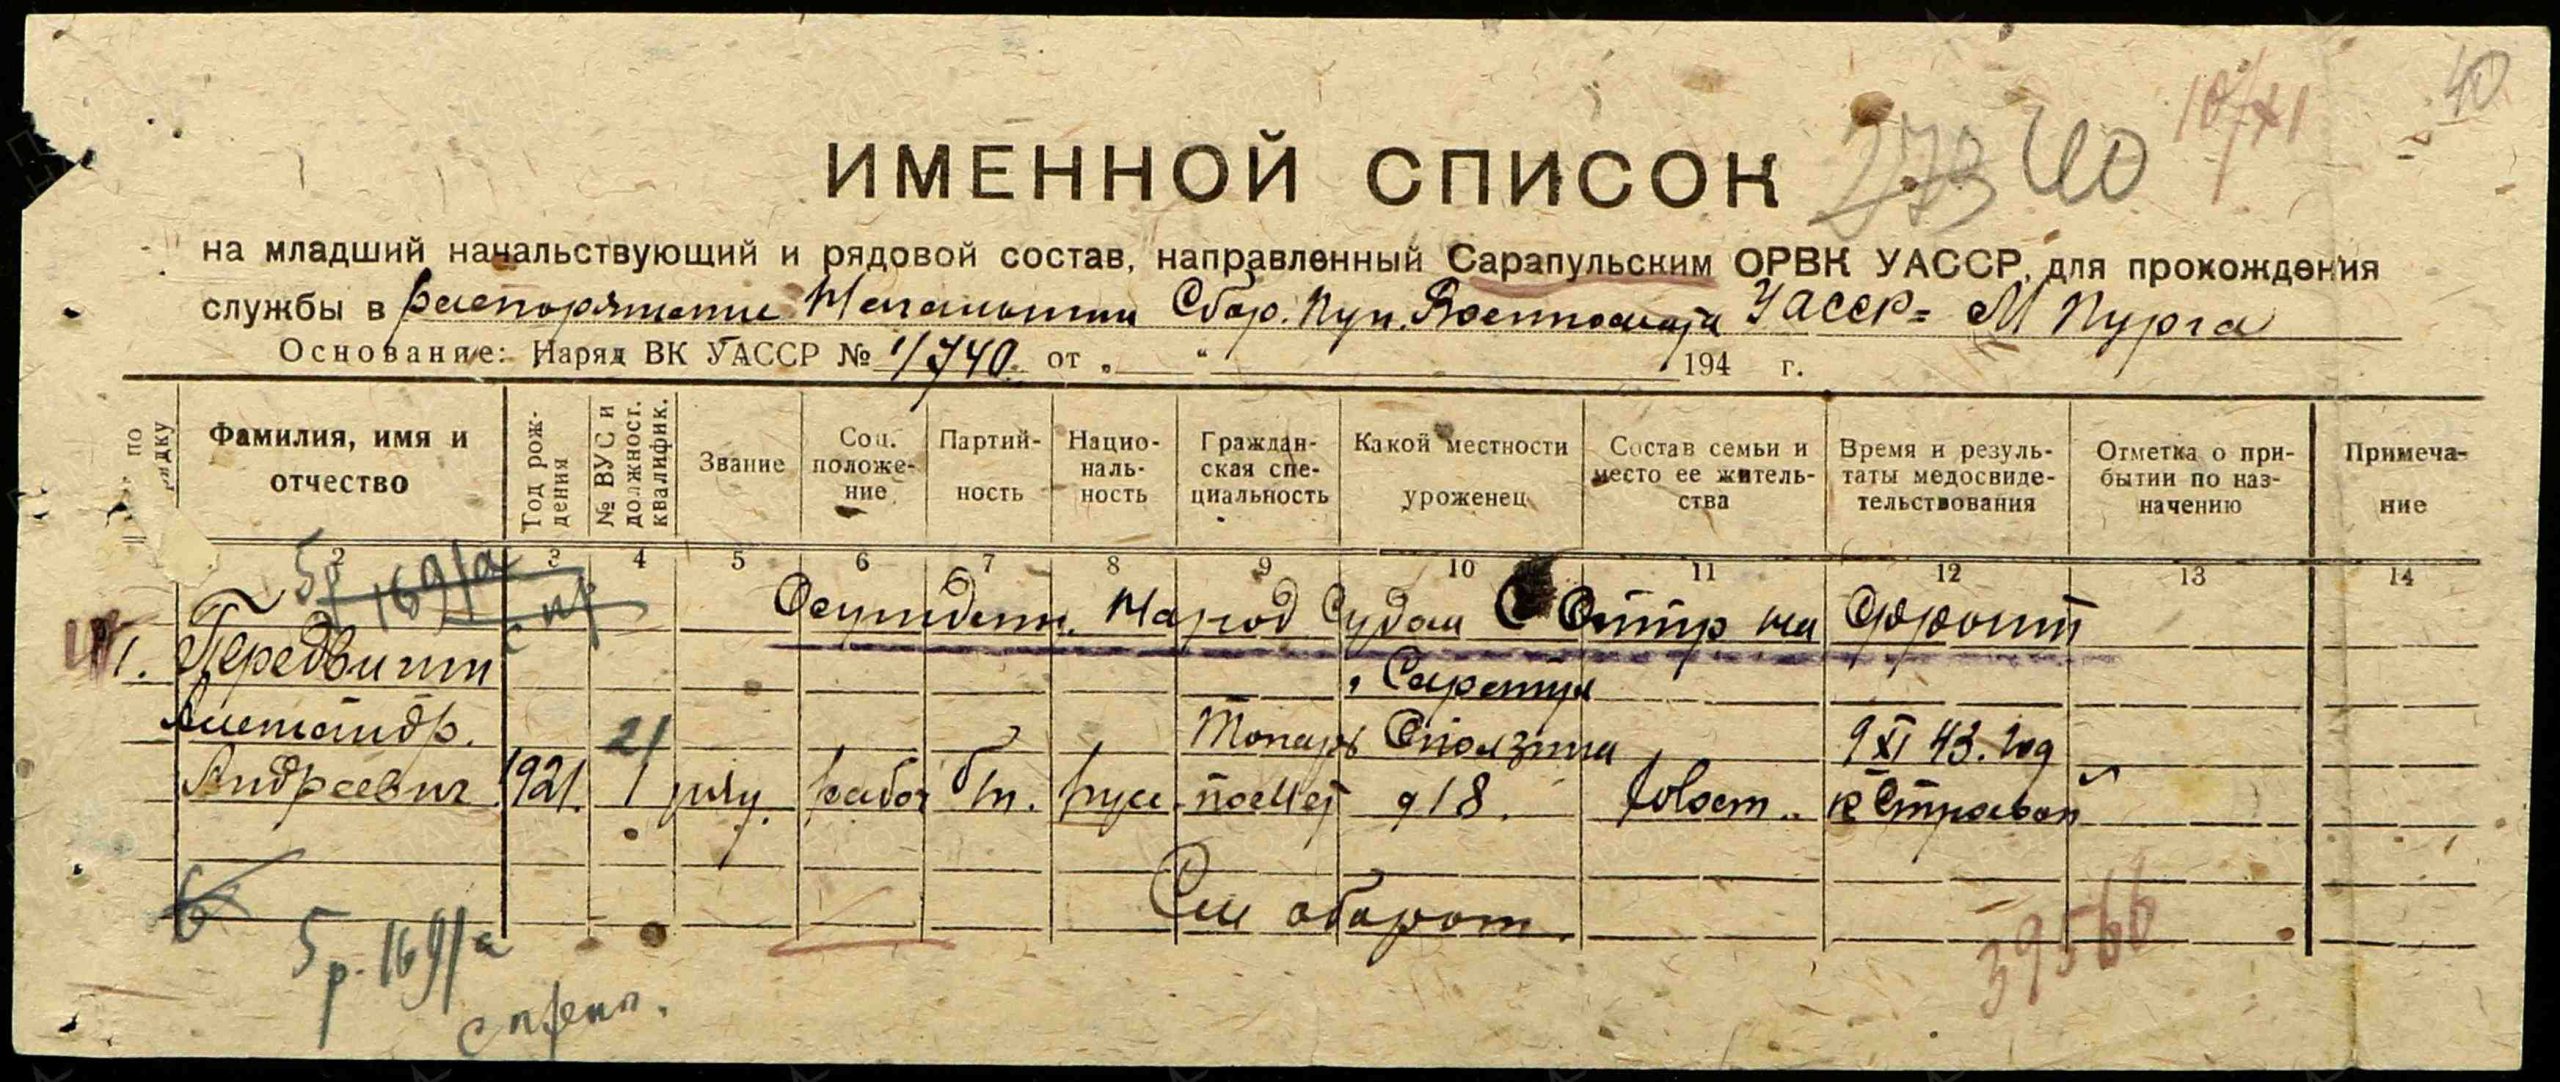 40
10/XI
ИМЕННОЙ СПИСОК 273 40
на младший начальствующий и рядовой состав, направленный Сарапульским ОРВК УАССР, для прохождения
службы в распоряжение Начальника Сбор. Пун. Военкомата УАССР = М Пурга
Основание: Наряд ВК УАССР № 1/740 от „ “ 194 г.
по рядку
Фамилия, имя и отчество
Год рождения
№ ВУС и должност. квалифик.
Звание
Соц. положение
Партийность
Националь-ность
Гражданская специальность
Какой местности уроженец
Состав семьи и место ее жительства
Время и результаты медосвидетельствования
Отметка о прибытии по назначению
Примечание
2 3 4 5 6 7 8 9 10 11 12 13 14
5р 169/а
Осужден. Народ Судом С Отпр на Фронт
1. Передвигин
Сарапул
Александр. 21 Токарь 9 XI 43. год
Андреевич 1921. 1 ряд. рабоч б/п. русс. по Мет д 18. холост.. к Строевой
См оборот.
6
5 р. 169/а
с преп.
39566